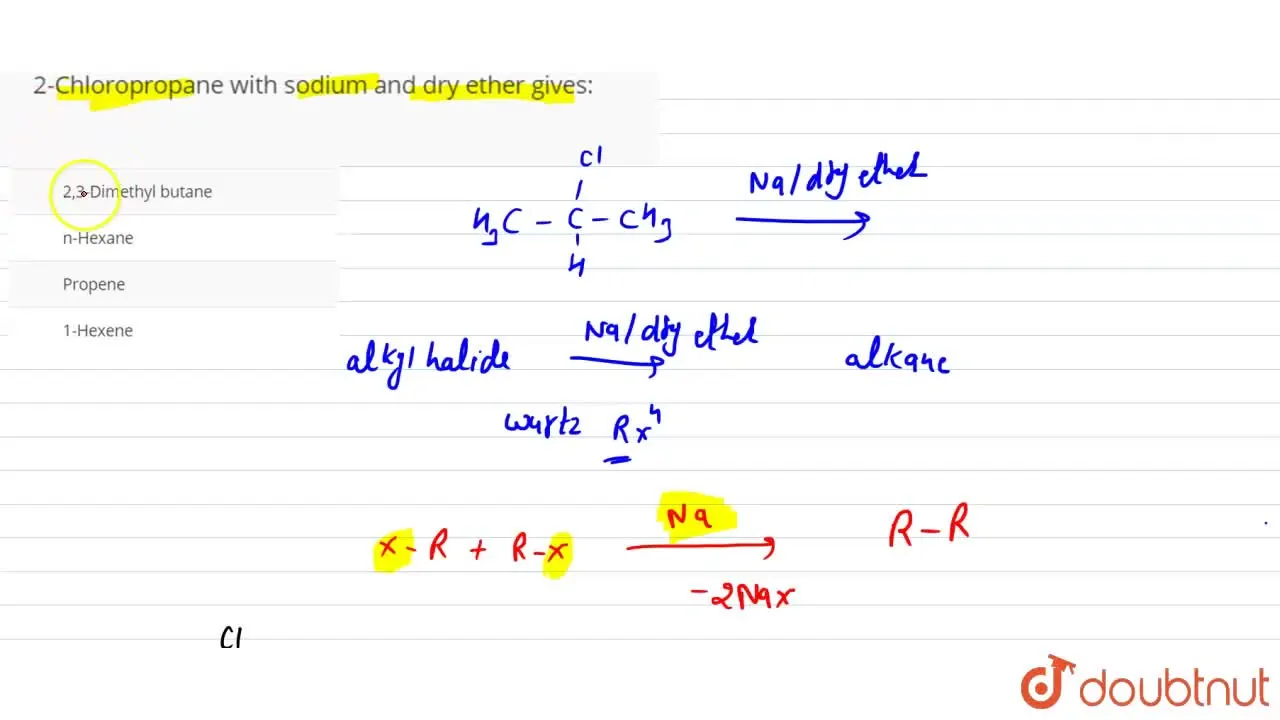 2-Chloropropane with sodium and dry ether gives:
2,3-Dimethyl butane
n-Hexane
Propene
1-Hexene
Cl
H3C – C – CH3
H
Na/dry ether
alkyl halide
Na/dry ether
alkane
wurtz Rxn
x – R + R – x
Na
-2Nax
R – R
Cl
doubtnut